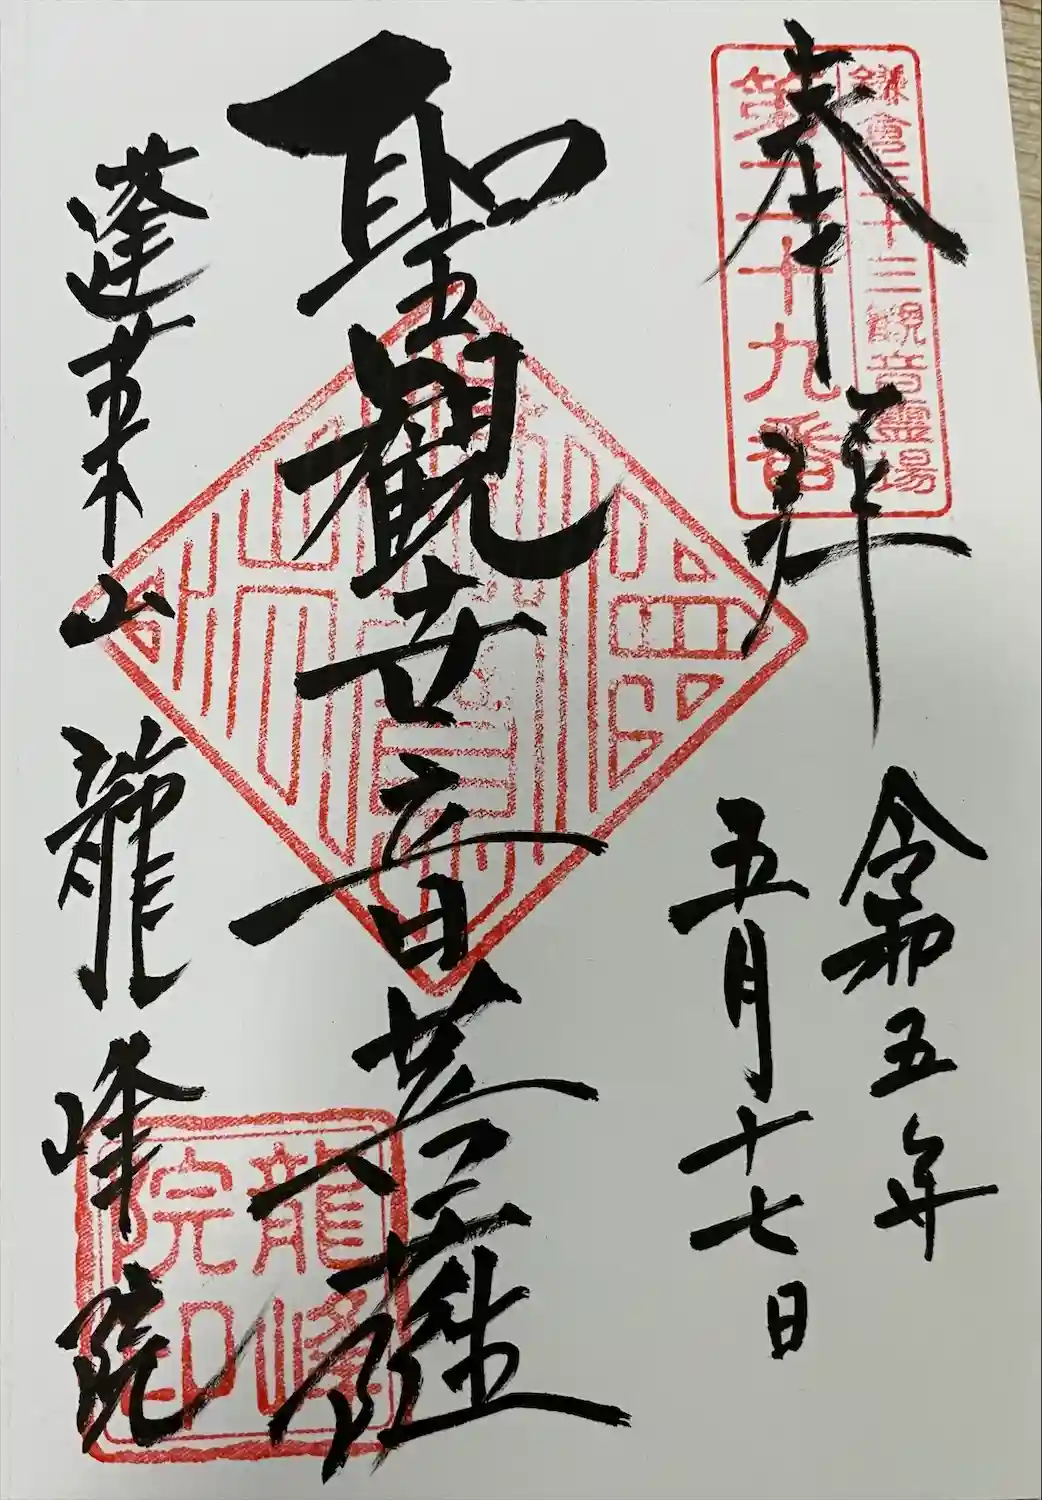 奉拝
鎌倉三十三観音霊場
第二十九番
令和五年
五月十七日
聖観世音菩薩
蓬莱山 龍峰院
龍峰
院印